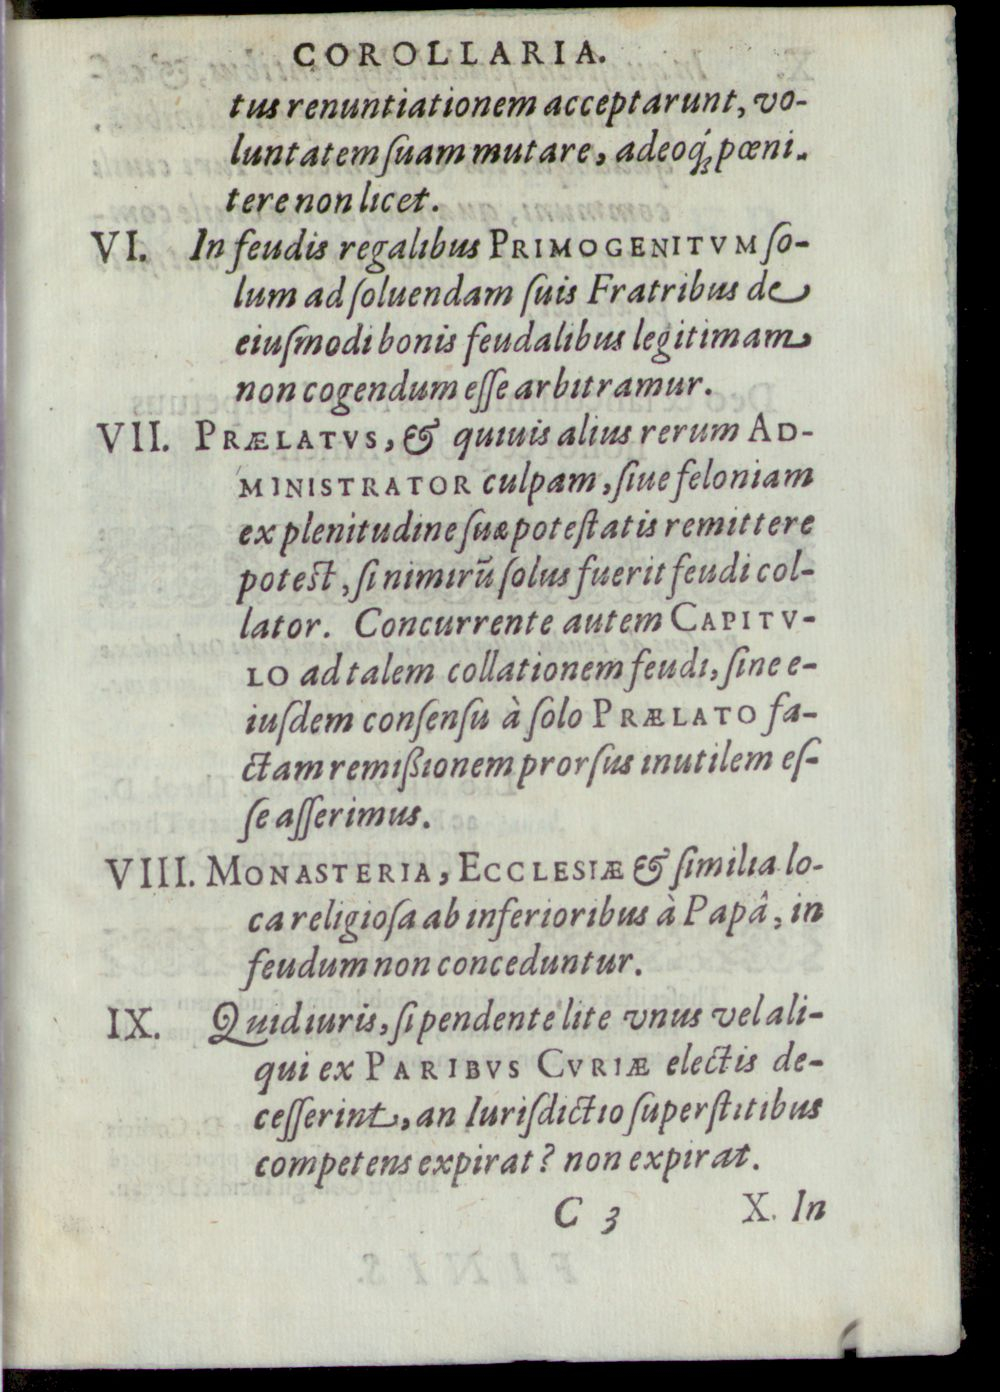 COROLLARIA.
tus renuntiationem acceptarunt, vo-
luntatem ſuam mutare, adeoq́; pœni-
tere non licet.
VI. In feudis regalibus PRIMOGENITVM ſo-
lum ad ſoluendam ſuis Fratribus de
eiuſmodi bonis feudalibus legitimam
non cogendum eſſe arbitramur.
VII. PRÆLATVS, & quiuis alius rerum AD-
MINISTRATOR culpam, ſiue feloniam
ex plenitudine ſuæ poteſtatis remittere
poteſt, ſi nimirũ ſolus fuerit feudi col-
lator. Concurrente autem CAPITV-
LO ad talem collationem feudi, ſine e-
iuſdem conſenſu à ſolo PRÆLATO fa-
ctam remiſſionem prorſus inutilem eſ-
ſe aſſerimus.
VIII. MONASTERIA, ECCLESIÆ & ſimilia lo-
ca religioſa ab inferioribus à Papâ, in
feudum non conceduntur.
IX. Quid iuris, ſi pendente lite vnus vel ali-
qui ex PARIBVS CVRIÆ electis de-
ceſſerint, an Iuriſdictio ſuperſtitibus
competens expirat? non expirat.
C 3 X. In